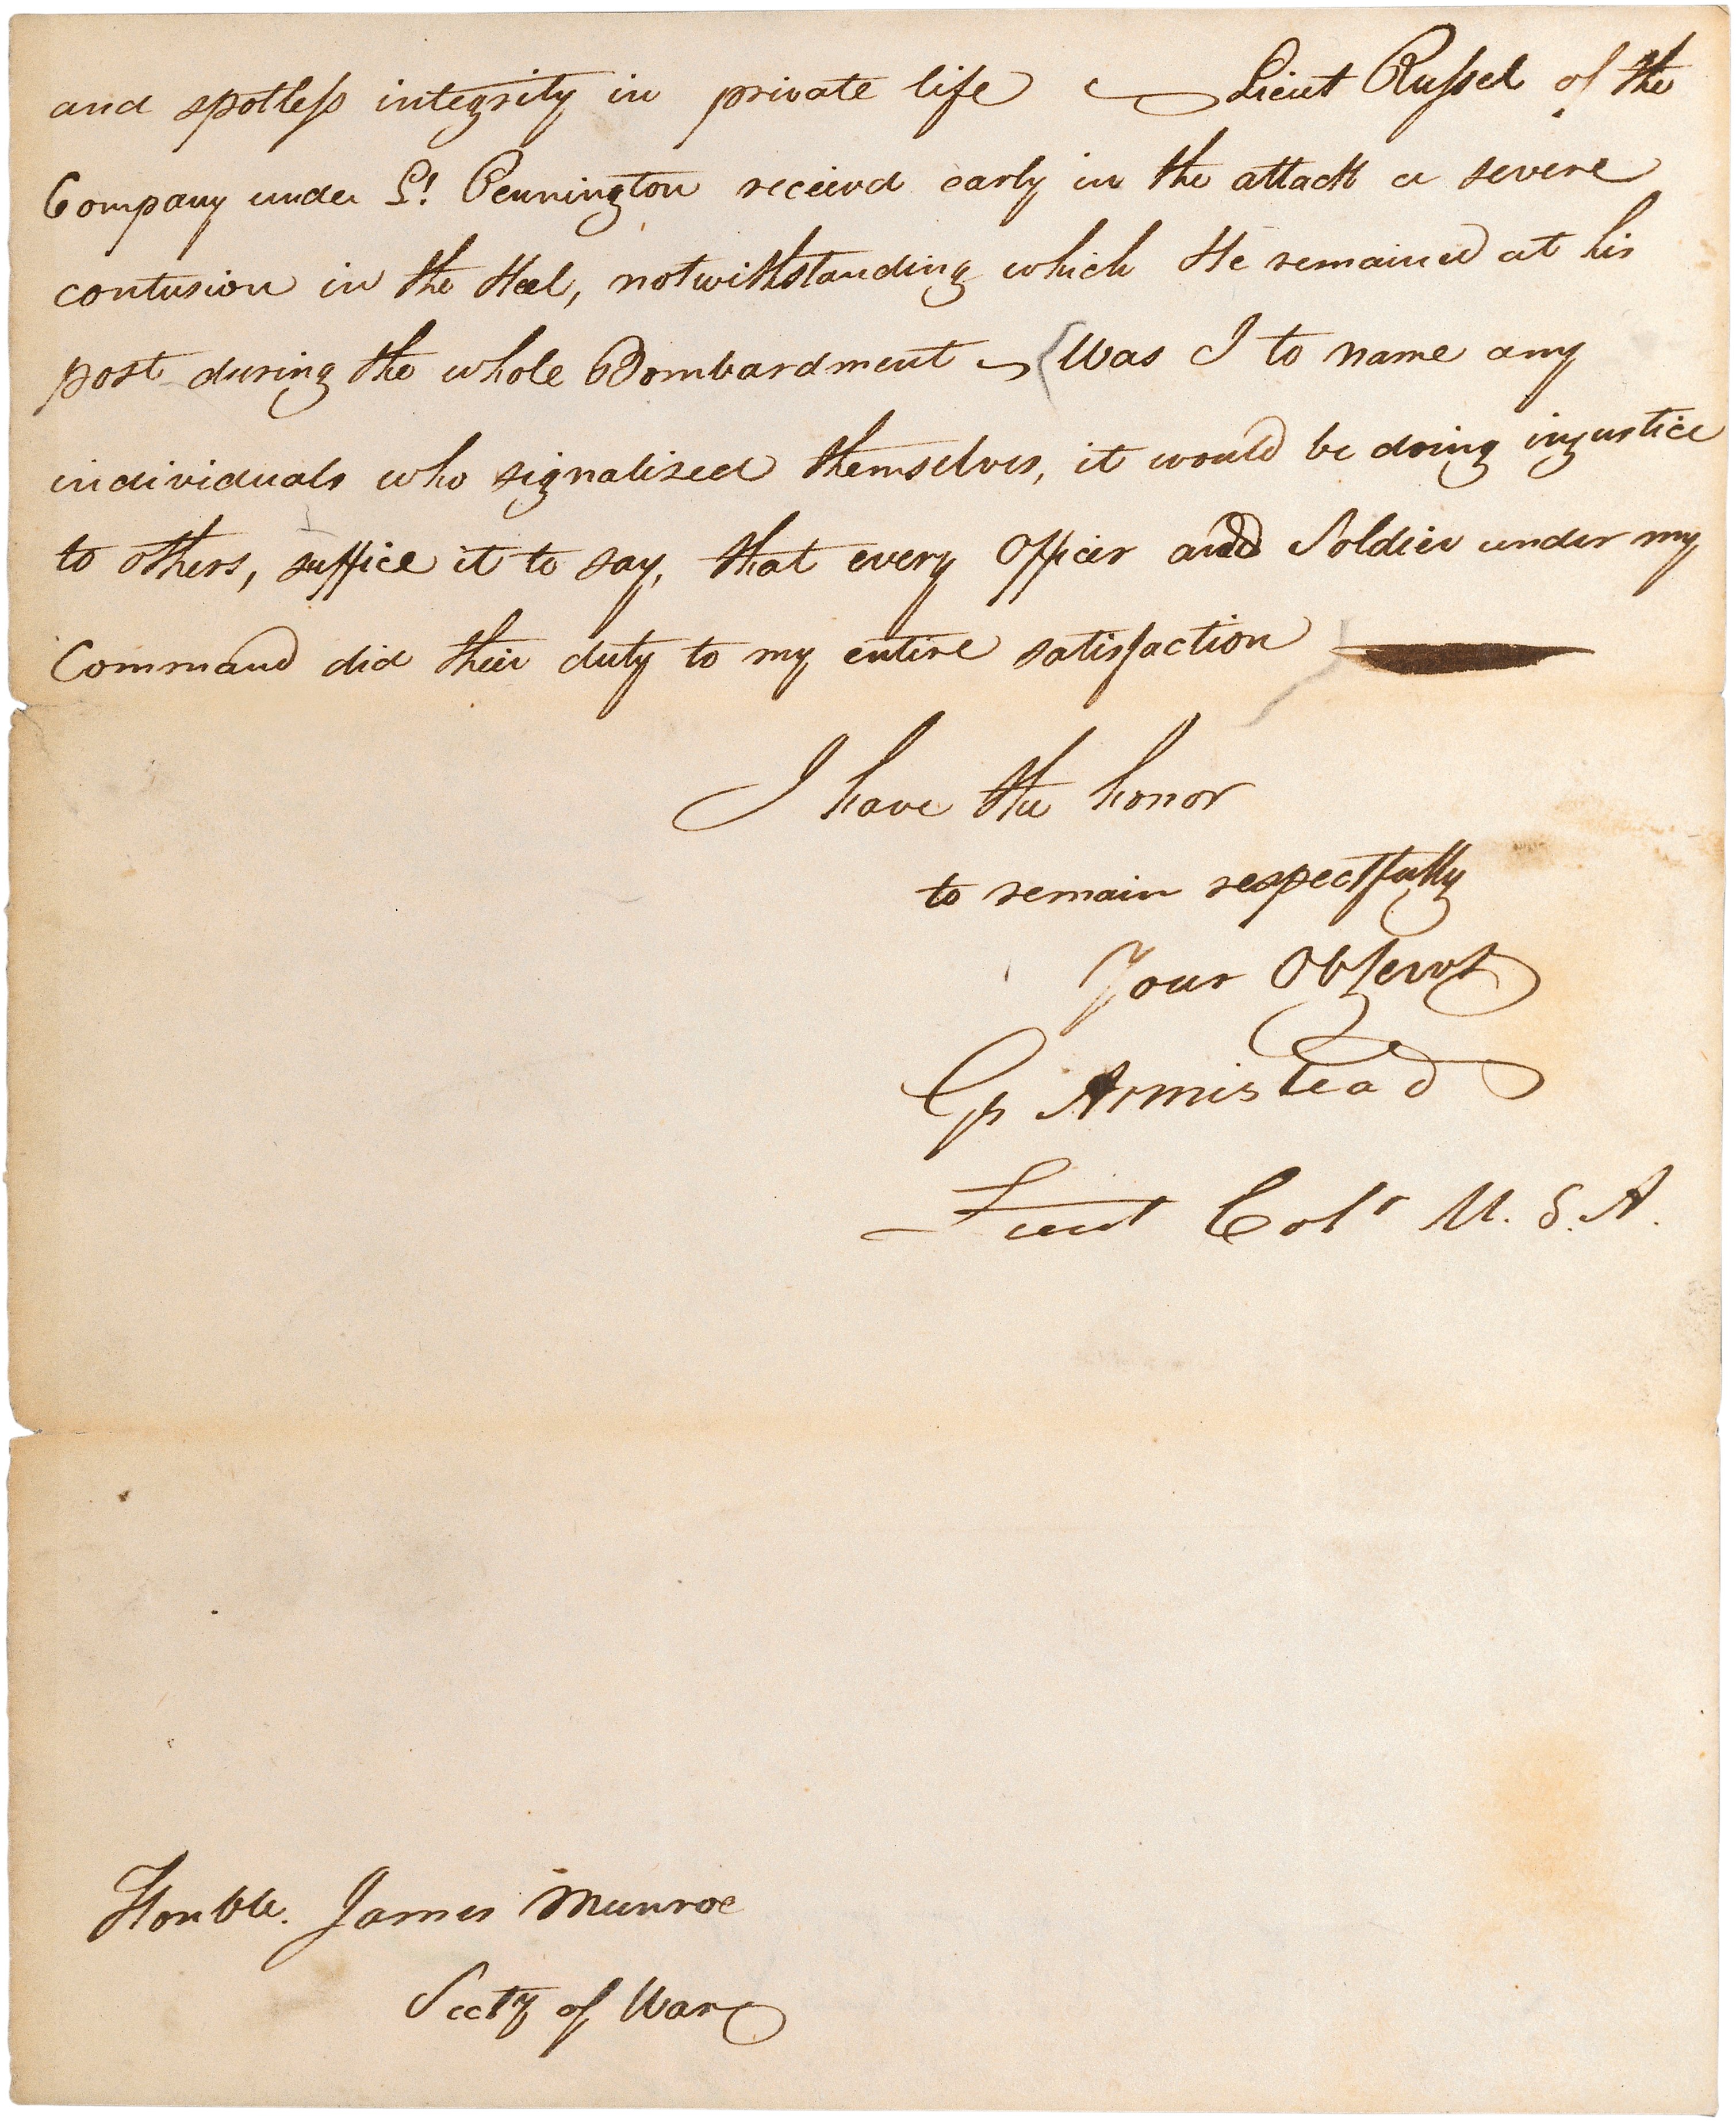 and spotless integrity in private life — Lieut Russel of the
Company under Lt. Pennington receivd early in the attack a severe
contusion in the Heel, notwithstanding which He remained at his
post during the whole Bombardment — Was I to name any
individuals who signalized themselves, it would be doing injustice
to others, suffice it to say, that every Officer and Soldier under my
Command did their duty to my entire satisfaction —
I have the honor
to remain respectfully
Your Observt
G Armistead
Lieut Col. U. S. A.
Honble. James Munroe
Secty of War